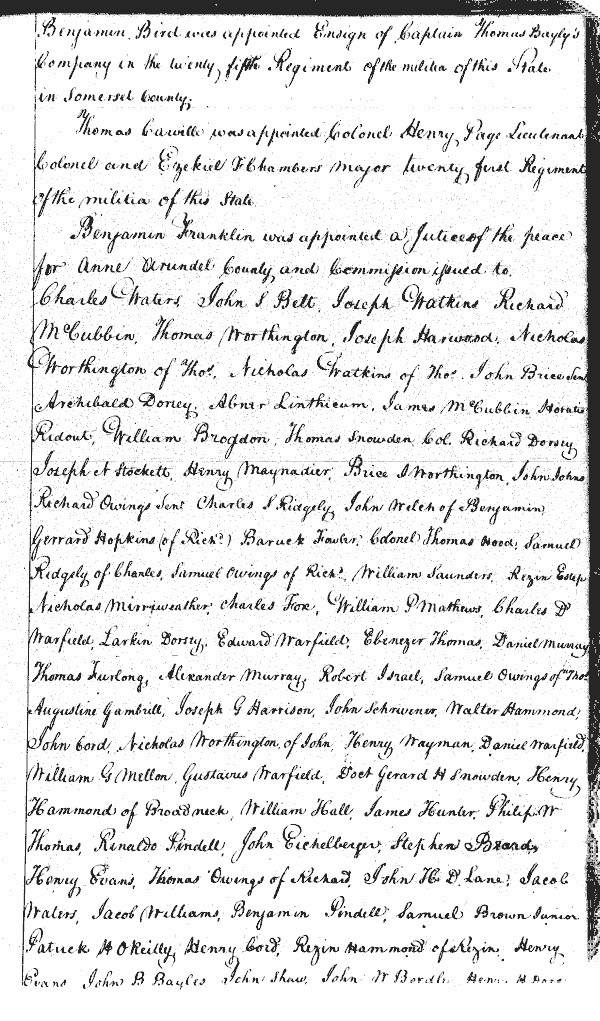 Benjamin Bird was appointed Ensign of Captain Thomas Bayly's
Company in the twenty fifth Regiment of the militia of this State
in Somerset County,
Thomas Carville was appointed Colonel Henry Page Lieutenant
Colonel and Ezekiel F Chambers Major twenty first Regiment
of the militia of this State
Benjamin Franklin was appointed a Jutice of the peace
for Anne Arundel County and Commission issued to
Charles Waters, John S Belt, Joseph Watkins Richard
McCubbin, Thomas Worthington, Joseph Harwood, Nicholas
Worthington of Thos. Nicholas Watkins of Thos. John Brice Senr
Archibald Dorsey, Abner Linthicum, James McCubbin Horatio
Ridout, William Brogdon, Thomas Snowden, Col. Richard Dorsey
Joseph N Stockett, Henry Maynadier, Brice J Worthington, John Johns
Richard Owings Senr Charles S Ridgely, John Welch of Benjamin
Gerrard Hopkins (of Richd.) Baruck Fowler, Colonel Thomas Hood, Samuel
Ridgely of Charles, Samuel Owings of Richd. William Saunders, Rezin Estep
Nicholas Mirriweather, Charles Fox, William P Mathews, Charles D
Warfield, Larkin Dorsey, Edward Warfield, Ebenezer Thomas, Daniel Murray
Thomas Furlong, Alexander Murray, Robert Israel, Samuel Owings of Thos.
Augustine Gambrill, Joseph G Harrison, John Schrivener, Walter Hammond,
John Cord, Nicholas Worthington of John, Henry Wayman, Daniel Warfield,
William G Mellon, Gustavus Warfield, Doct Gerard H Snowden, Henry
Hammond of Broadneck, William Hall, James Hunter, Philip W
Thomas, Rinaldo Pindell, John Eichelberger, Stephen Beard,
Henry Evans, Thomas Owings of Richard, John H. D. Lane, Jacob
Waters, Jacob Williams, Benjamin Pindell, Samuel Brown Junior
Patuck H OReilly, Henry Cord, Rezin Hammond of Rezin, Henry
Evans John B Bayles John Shaw, John W Bordley Henry H